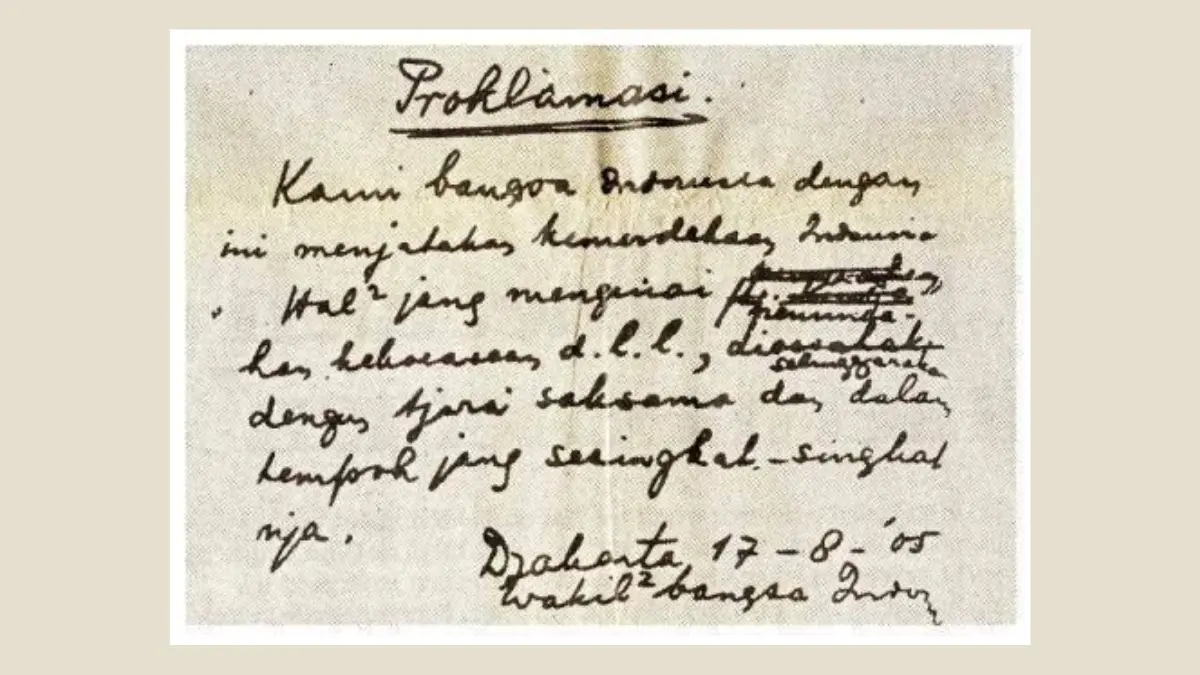 Proklamasi.
Kami bangsa Indonesia dengan
ini menjatakan kemerdekaan Indonesia
. Hal² jang mengenai
pemindahan kekoeasaan d.l.l., diselenggarakan
dengan tjara saksama dan dalam
tempoh jang sesingkat-singkat
nja.
Djakarta 17 - 8 - '05
Wakil² bangsa Indon